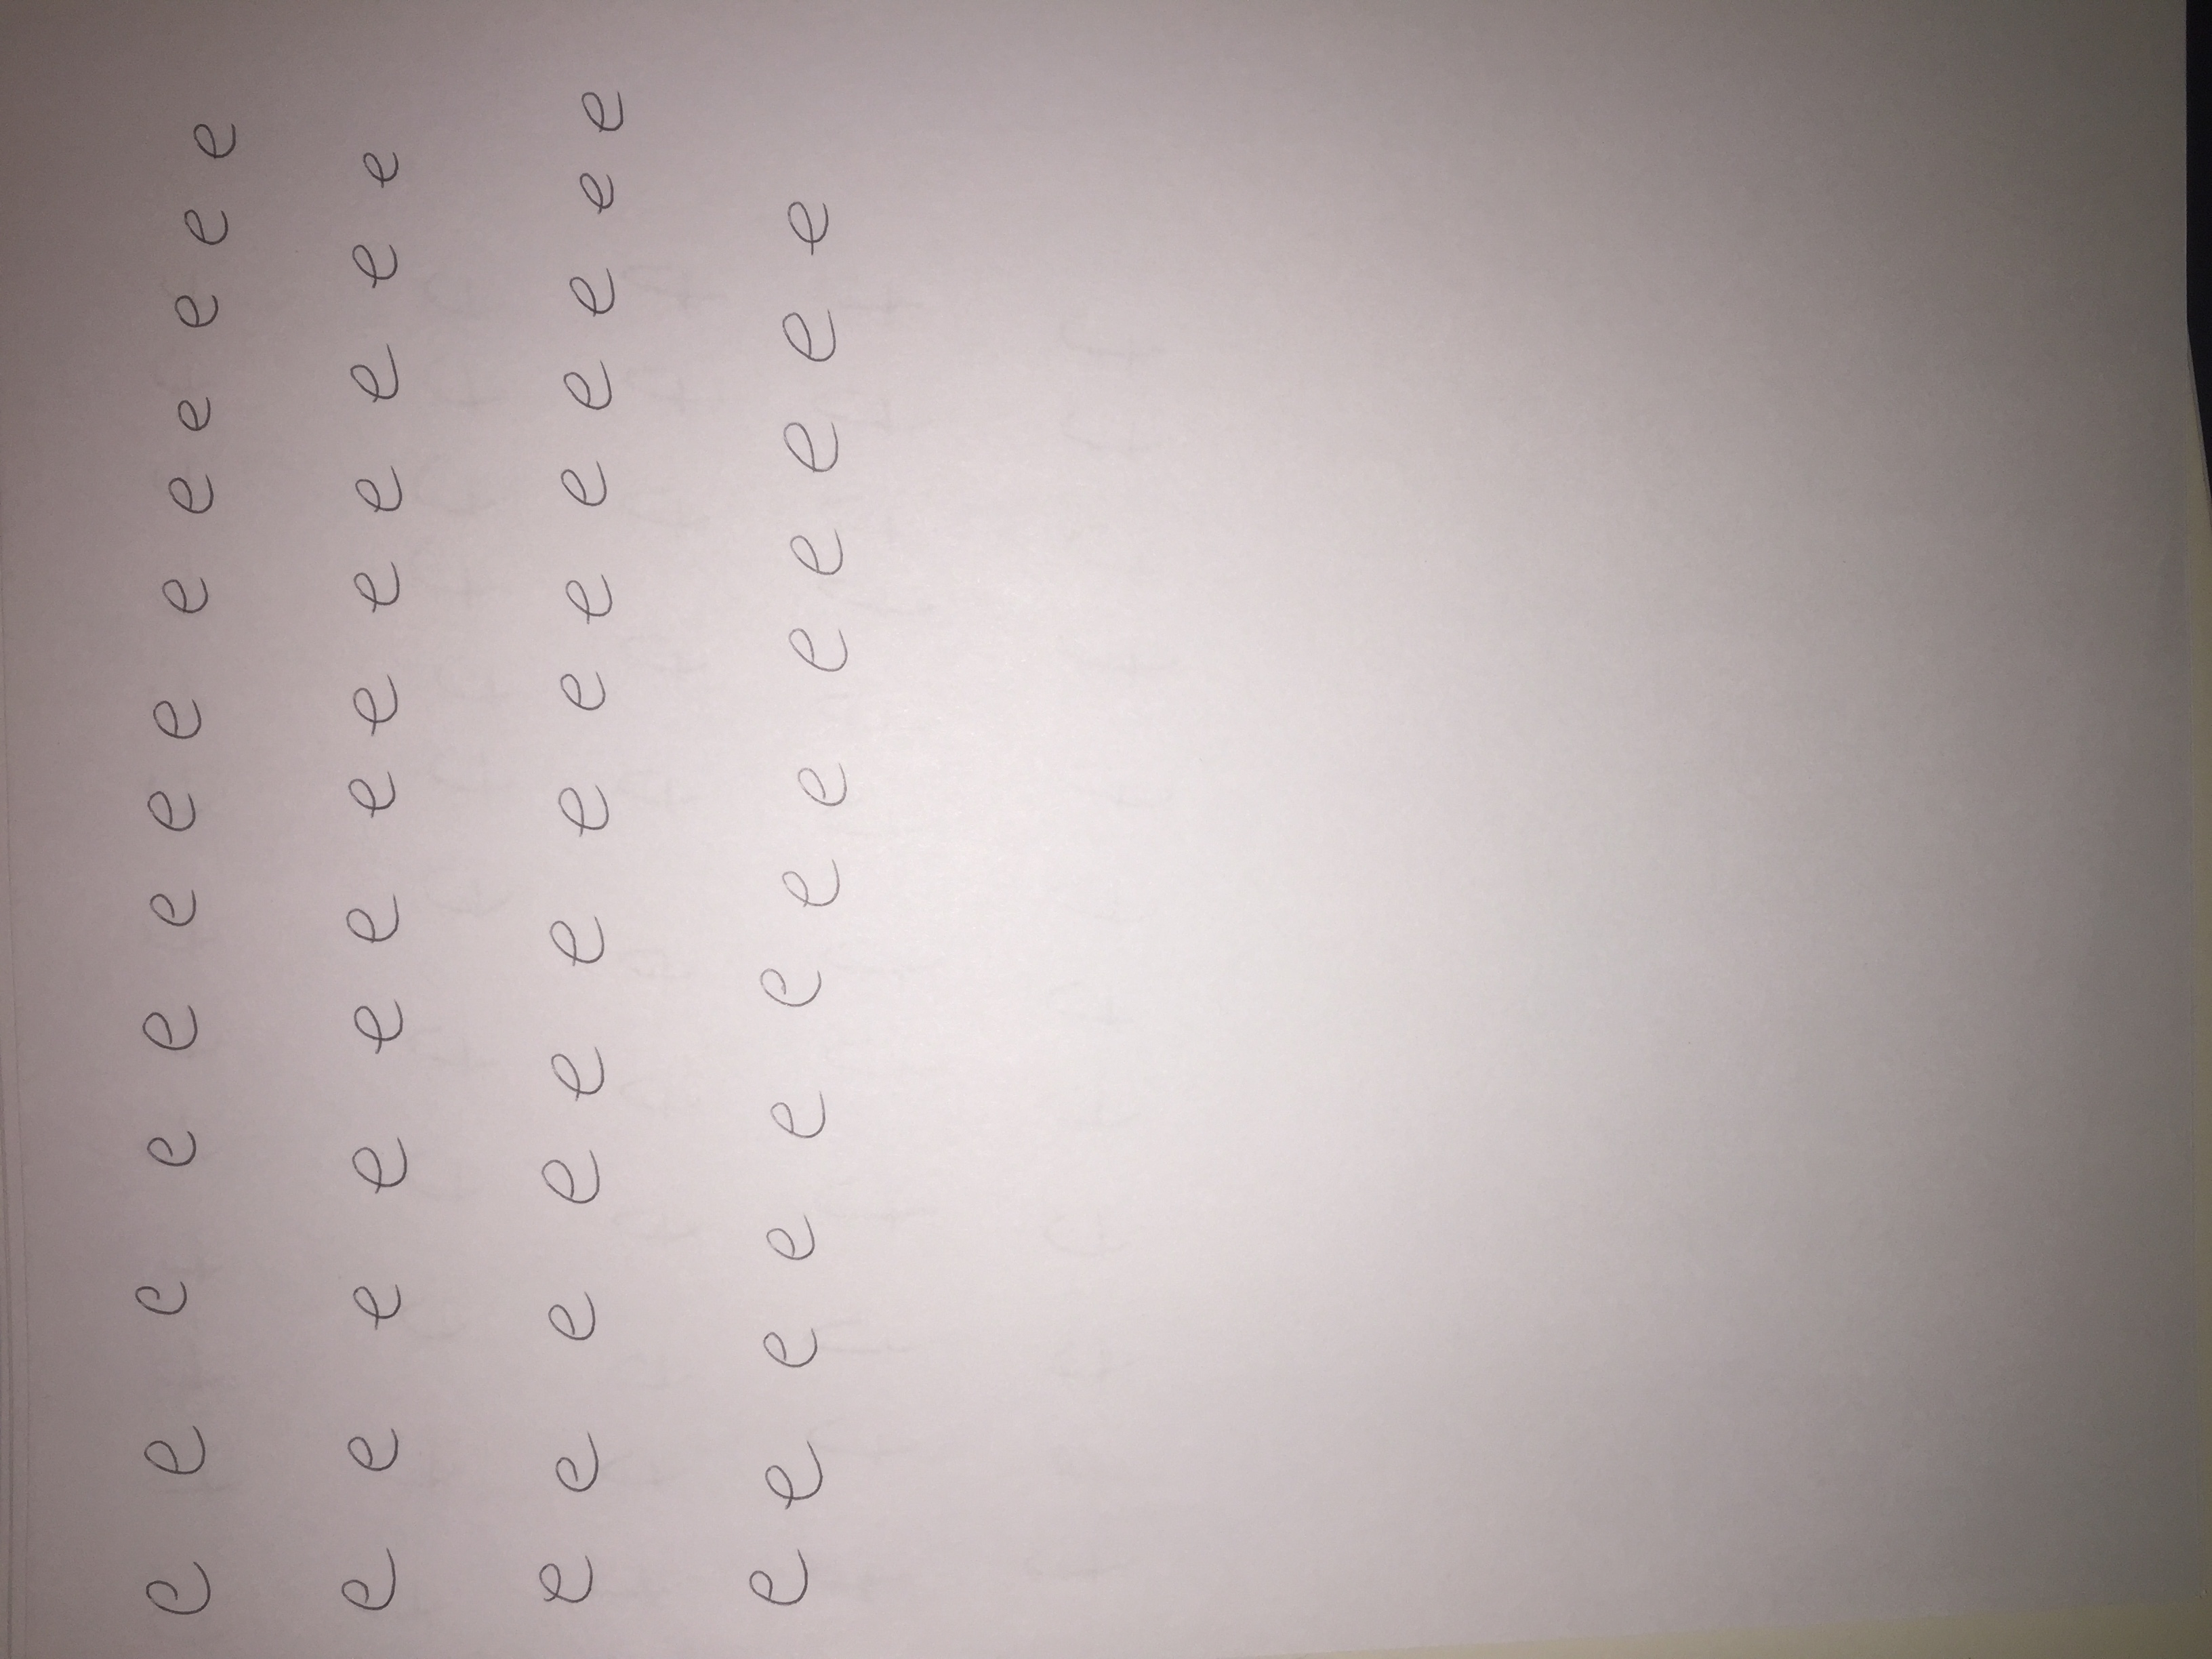 e e e e e e e e e e e e e e
e e e e e e e e e e e e e
e e e e e e e e e e e e e e
e e e e e e e e e e e e e